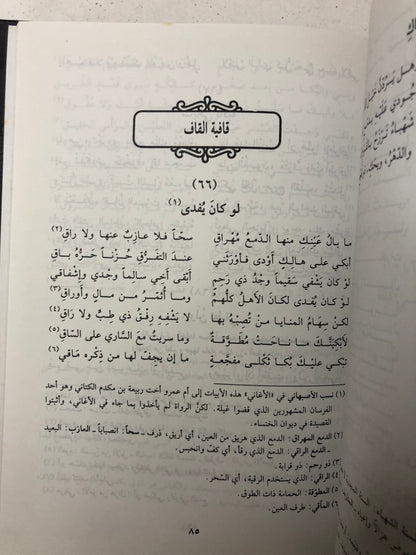 قافية القاف
(٦٦)
لو كانَ يُفدى (١)
ما بالُ عَيْنِكِ منها الدمعُ مُهْراقِ سحّاً فلا عازبٌ عنها ولا راقِ (٢)
أبكي على هالِكٍ أوْدى فأورَثَني عندَ التفرّقِ حُزْناً حَرّهُ باقِ
لو كان يَشْفي سَقيماً وَجْدُ ذي رَحِمٍ أبْقى أخي سالِماً وَجْدي وإشْفاقي
لو كان يُفْدى لكانَ الأهلُ كلُّهمُ وما أُثَمّرُ من مالٍ وأوراقِ (٣)
لكنْ سِهامُ المنايا من تُصِبْهُ بها لا يَشْفِهِ رِفْقُ ذي طِبٍّ ولا راقِ (٤)
لأبْكِيَنّكَ ما ناحَتْ مُطَوَّقَةٌ وما سَرَيْتُ مَعَ السّاري على السّاقِ (٥)
تبكي عليكَ بُكا ثَكْلى مفجَّعةٍ ما إن يَجِفّ لها من ذِكْرِهِ ماقي (٦)
(١) نسب الأصبهاني في «الأغاني» هذه الأبيات إلى أم عمرو أخت ربيعة بن مكدم الكناني وهو أحد
الفرسان المشهورين الذي قضوا غيلة. لكنّ الرواة لم يأخذوا بما جاء في الأغاني، وأثبتوا
القصيدة في ديوان الخنساء.
(٢) الدمع المهراق: الدمع الذي هريق من العين، أي أريق، ذرف ـ سحاً: انصباباً ـ العازب: البعيد
ـ الدمع الراقي: الدمع الذي رقأ، أي كفّ وانحبس.
(٣) ذو رحم: ذو قرابة.
(٤) الراقي: الذي يستخدم الرقية، أي السّحر.
(٥) المطوّقة: الحمامة ذات الطوق.
(٦) المآقي: طرف العين.
٨٥